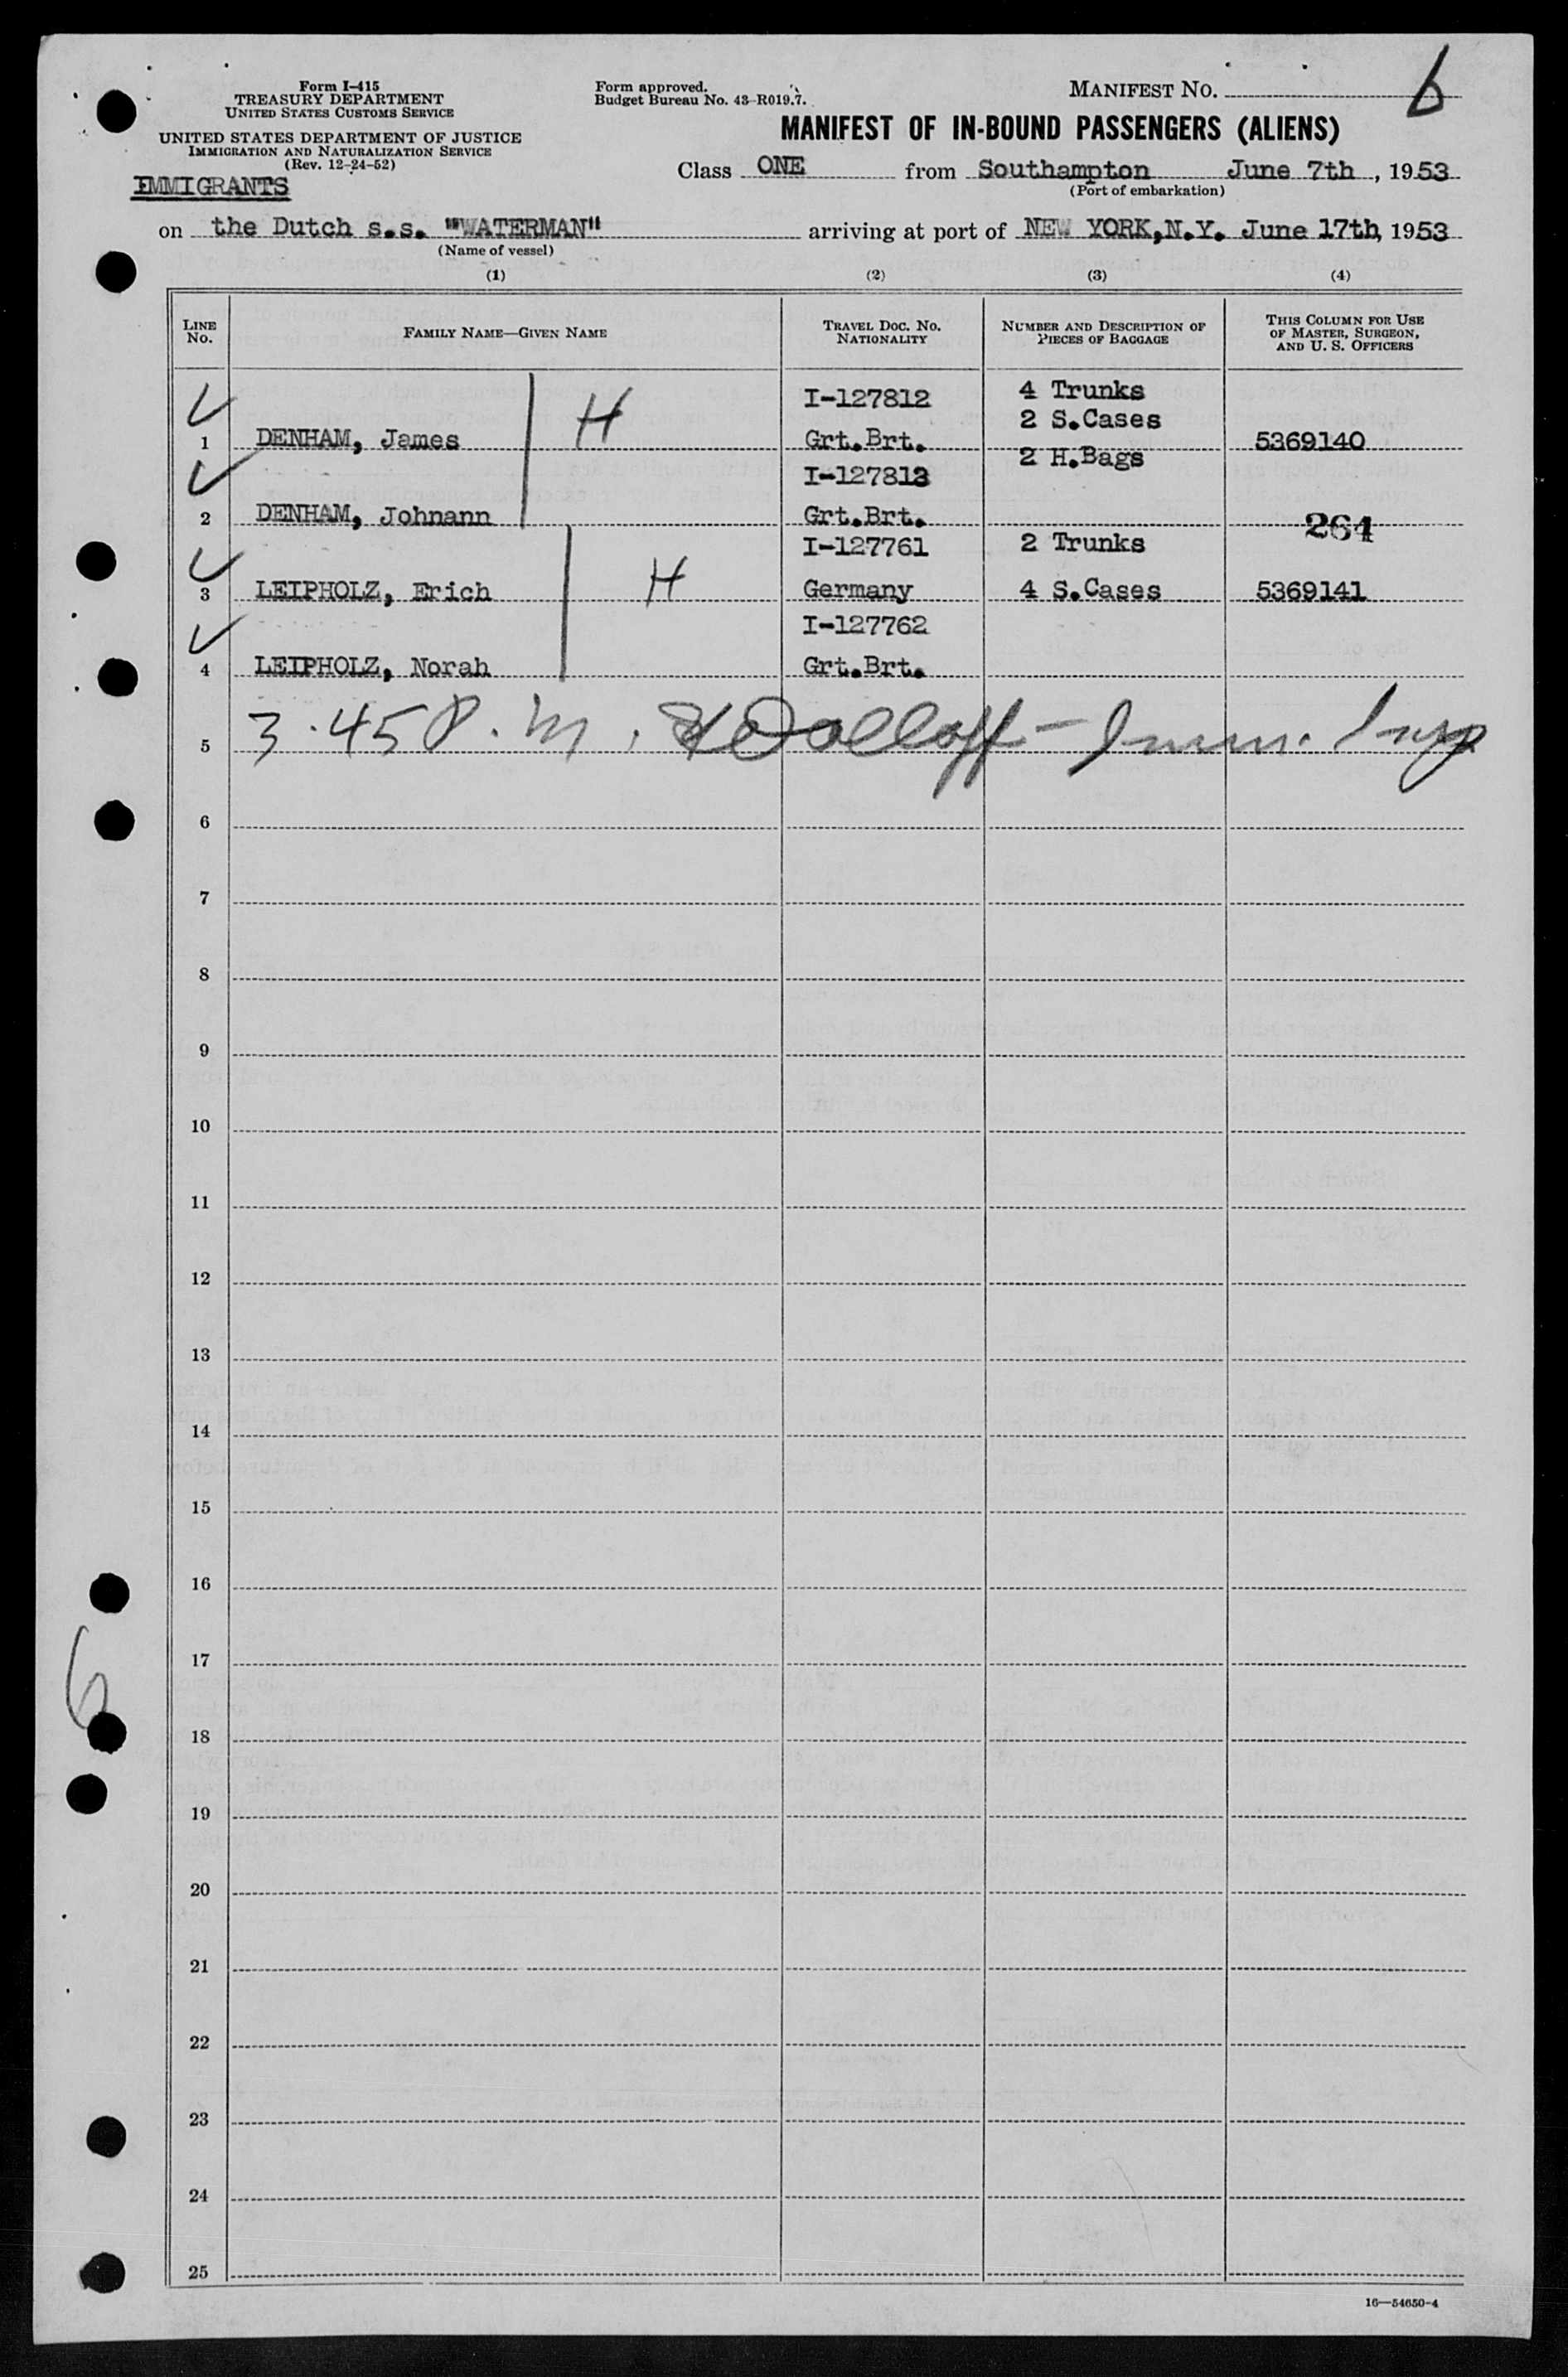 Form I-415
TREASURY DEPARTMENT
UNITED STATES CUSTOMS SERVICE
UNITED STATES DEPARTMENT OF JUSTICE
IMMIGRATION AND NATURALIZATION SERVICE
(Rev. 12-24-52)
IMMIGRANTS
Form approved.
Budget Bureau No. 43-R019.7.
MANIFEST NO. 6
MANIFEST OF IN-BOUND PASSENGERS (ALIENS)
Class ONE from Southampton June 7th, 1953
(Port of embarkation)
on the Dutch s.s. "WATERMAN" arriving at port of NEW YORK,N.Y. June 17th, 1953
(Name of vessel)
(1) (2) (3) (4)
LINE NO. FAMILY NAME—GIVEN NAME TRAVEL DOC. NO. NATIONALITY NUMBER AND DESCRIPTION OF PIECES OF BAGGAGE THIS COLUMN FOR USE OF MASTER, SURGEON, AND U. S. OFFICERS
I-127812 4 Trunks
2 S.Cases
1 DENHAM, James H Grt.Brt. 5369140
2 H.Bags
I-127813
2 DENHAM, Johnann Grt.Brt. 264
I-127761 2 Trunks
3 LEIPHOLZ, Erich H Germany 4 S.Cases 5369141
I-127762
4 LEIPHOLZ, Norah Grt.Brt.
5 3.45 P.M. - Imm. Insp
6
7
8
9
10
11
12
13
14
15
16
17
6
18
19
20
21
22
23
24
25
16—54650-4